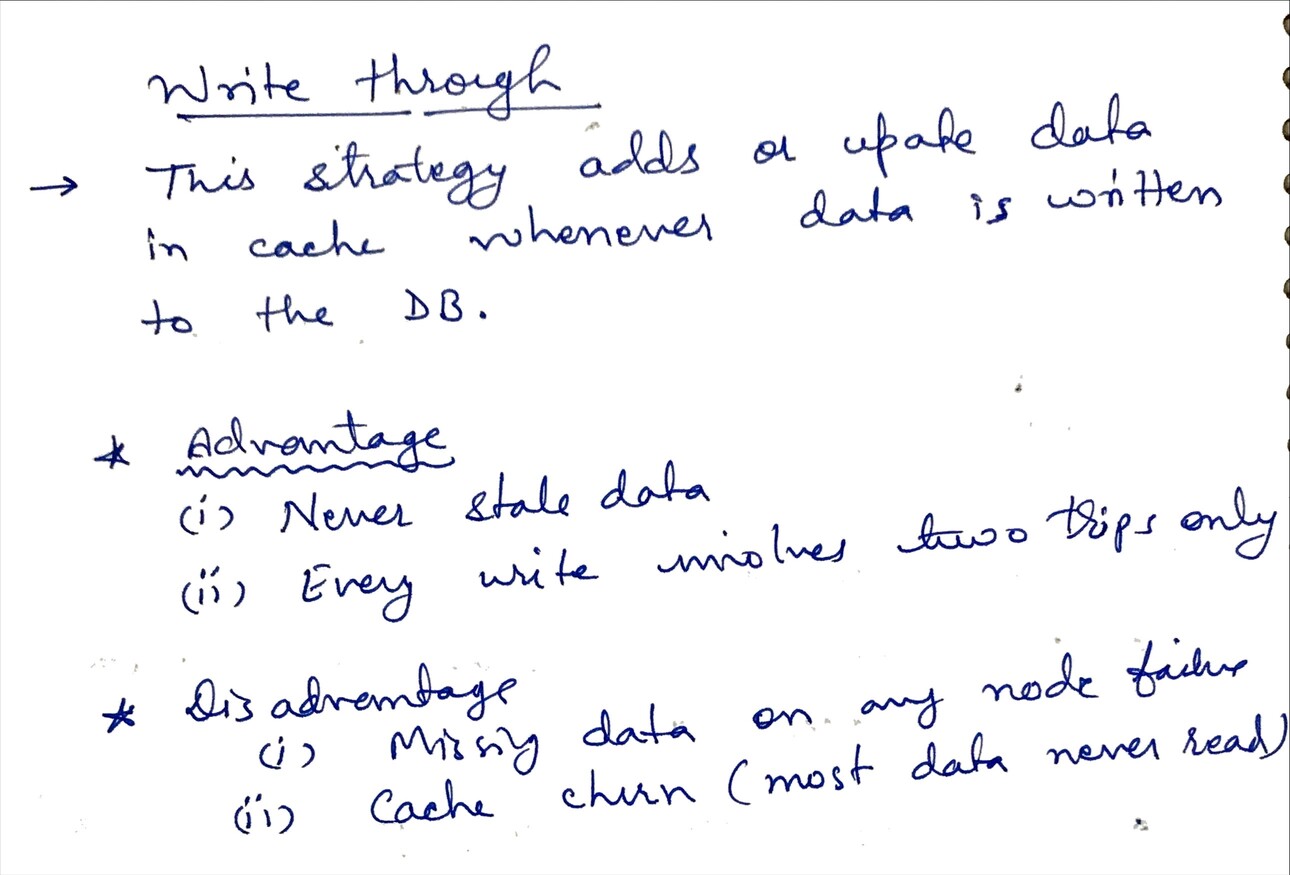 Write through
→ This strategy adds or upate data
in cache whenever data is written
to the DB.
* Advantage
(i) Never stale data
(ii) Every write involves two trips only
* Disadvantage
(i) Missing data on any node failure
(ii) Cache churn (most data never read)